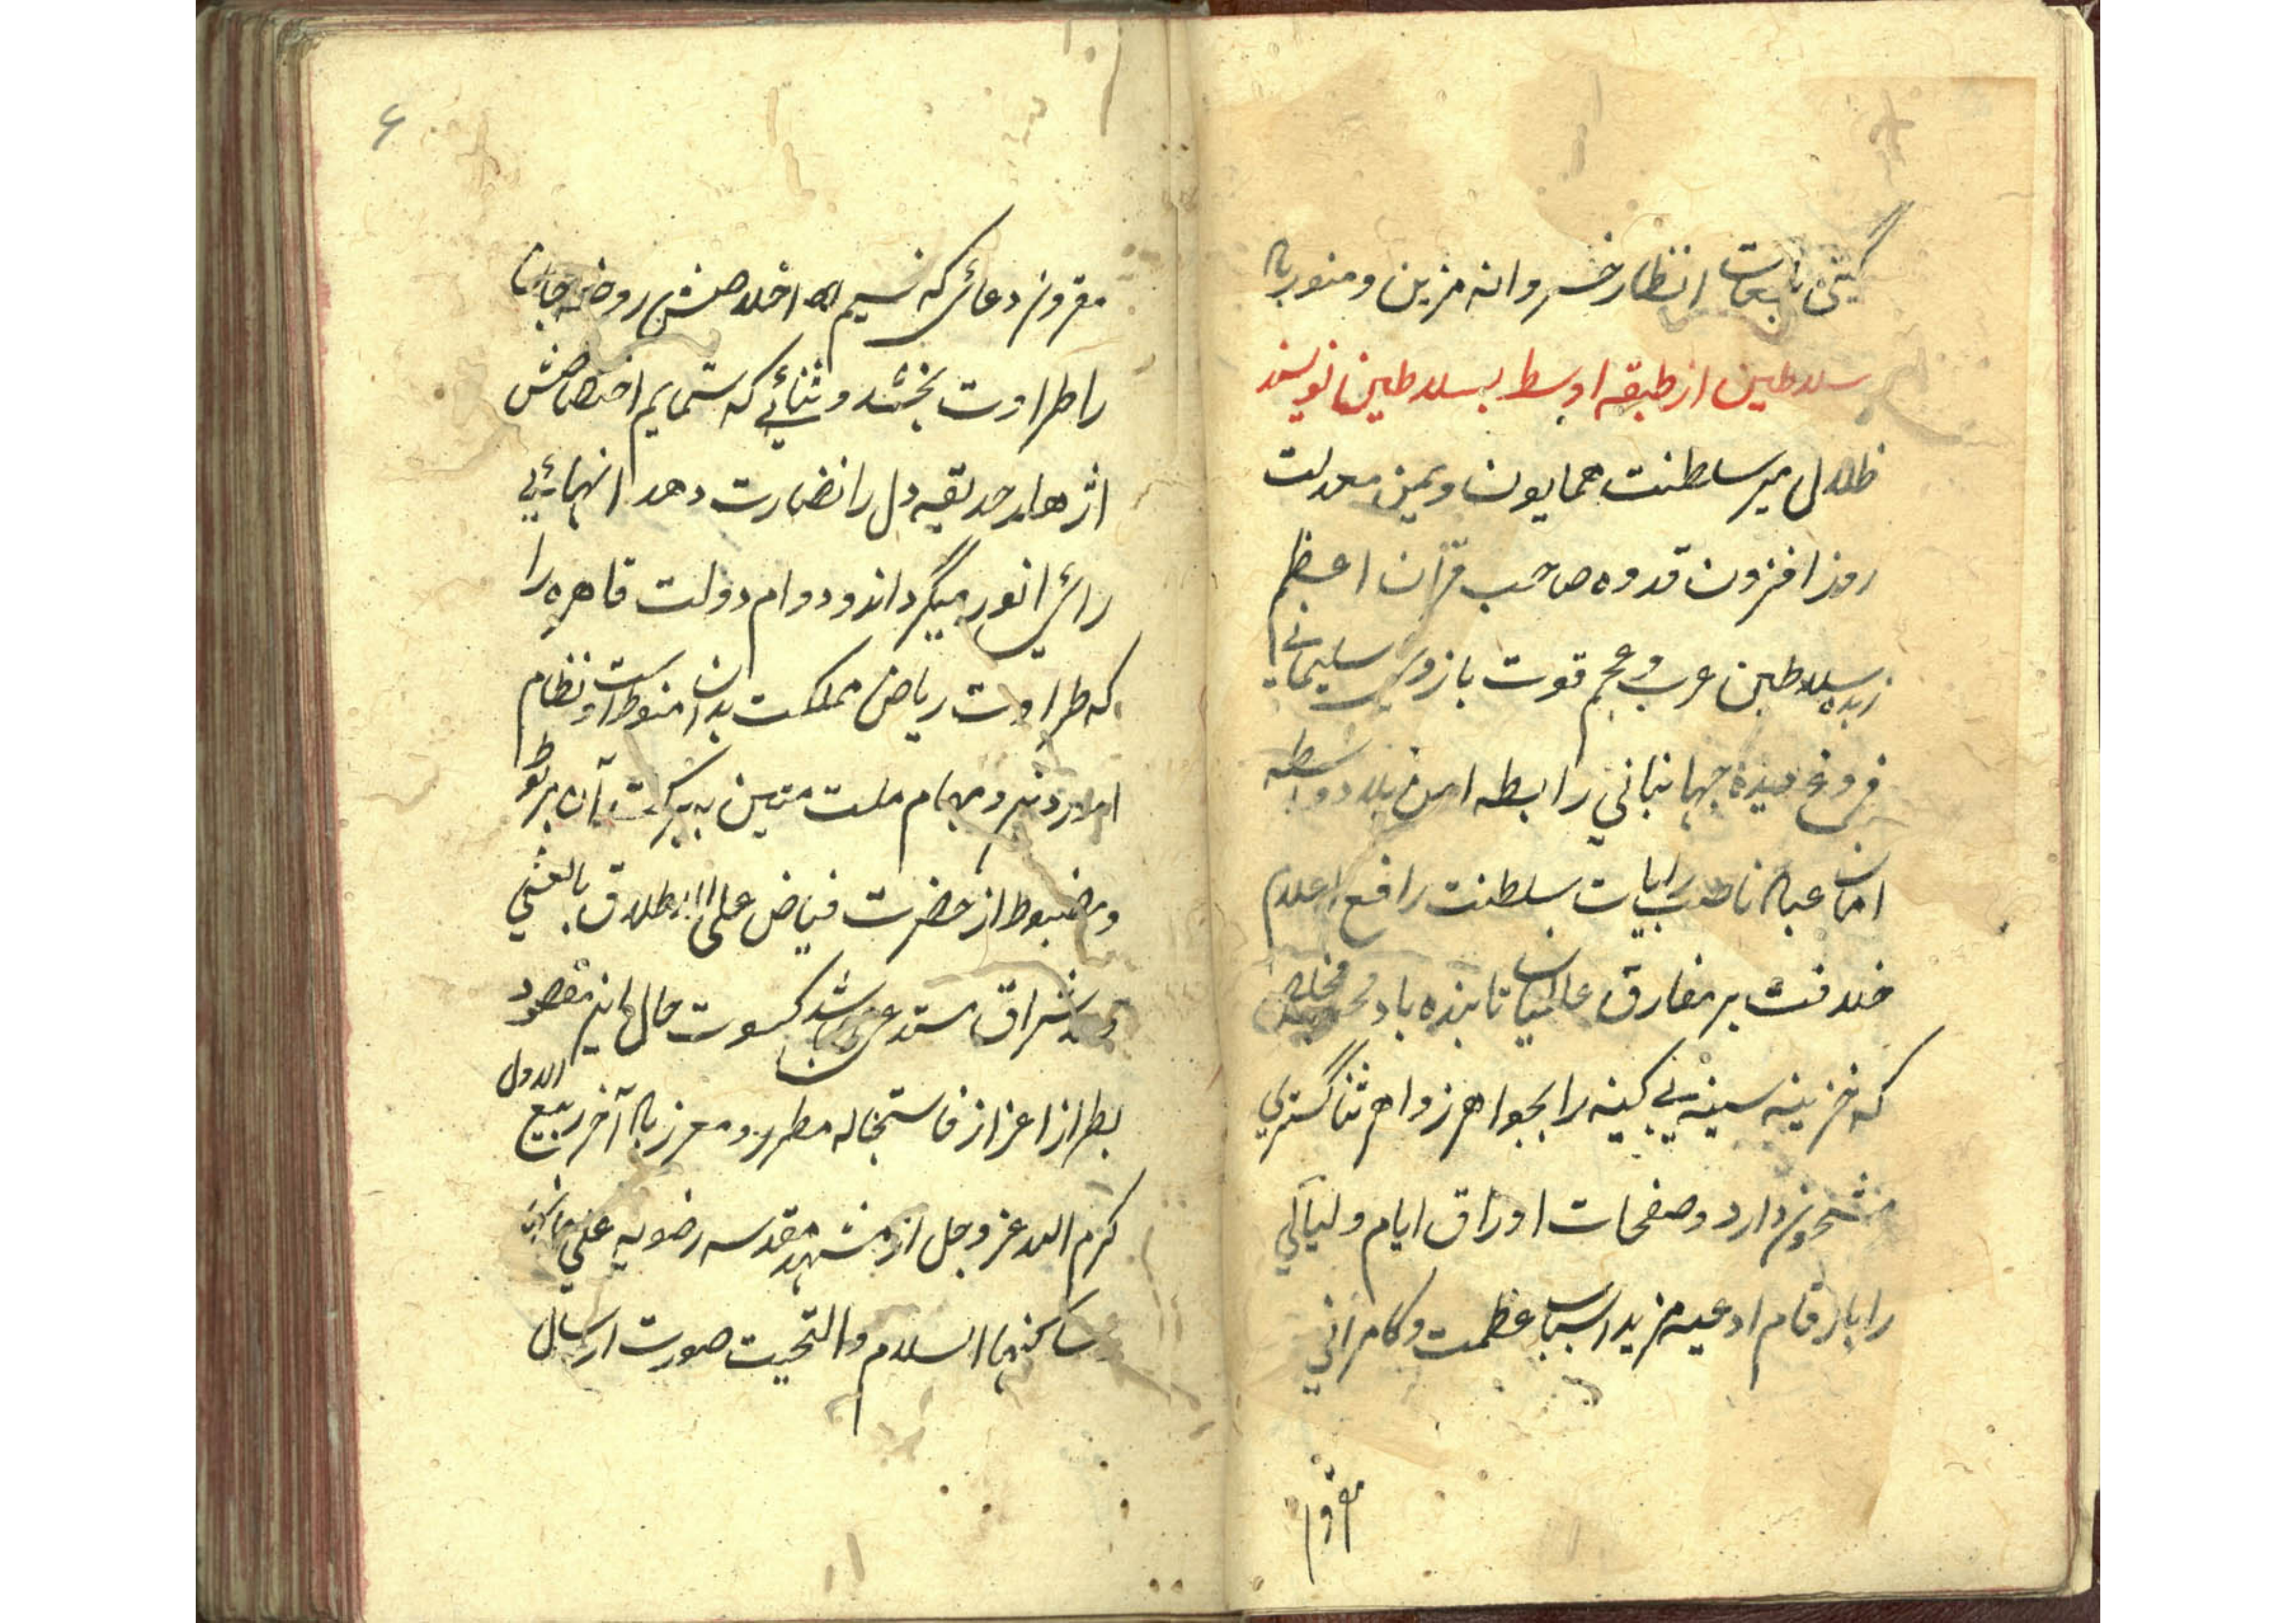 گیتی انظار خسروانه مزین و منور باد
سلاطین از طبقه اوسط بسلاطین نویسند
ظلال میر سلطنت همایون و یمن معدلت
روز افزون قدوه صاحب قرآن اعظم
زبده سلاطین عرب و عجم قوت بازوی سلیمانی
فروغ دیده جهانبانی رابطه امن بلاد واسطه
امان عباد ناصب رایات سلطنت رافع اعلام
خلافت بر مفارق عالمیان تابنده باد مخلص
که خزینه سینه بی کینه را بجواهر زواهر ثنا گستری
مشحون دارد و صفحات اوراق ایام و لیالی
را بارقام ادعیه مزید اسباب عظمت و کامرانی
مقرون
۶
مقرون دعائی که نسیم اخلاصش روضه جان
را طراوت بخشد و ثنائی که شمایم اختصاصش
اثرها حدیقه دل را نضارت دهد انهائی
رائی انور میگرداند و دوام دولت قاهره را
که طراوت ریاض مملکت بدان منوط است و نظام
امور دین و مهام ملت متین به برکت آن مربوط
و مضبوط از حضرت فیاض علی الاطلاق بالعشی
والاشراق مستدعی کسوت حال مقصود
بطراز اعزاز فاستجبنا له مطرز و معزز باد آخر ربیع الاول
کرم الله عز وجل از مشهد مقدسه رضویه علی
ساکنها السلام والتحیت صورت ارسال